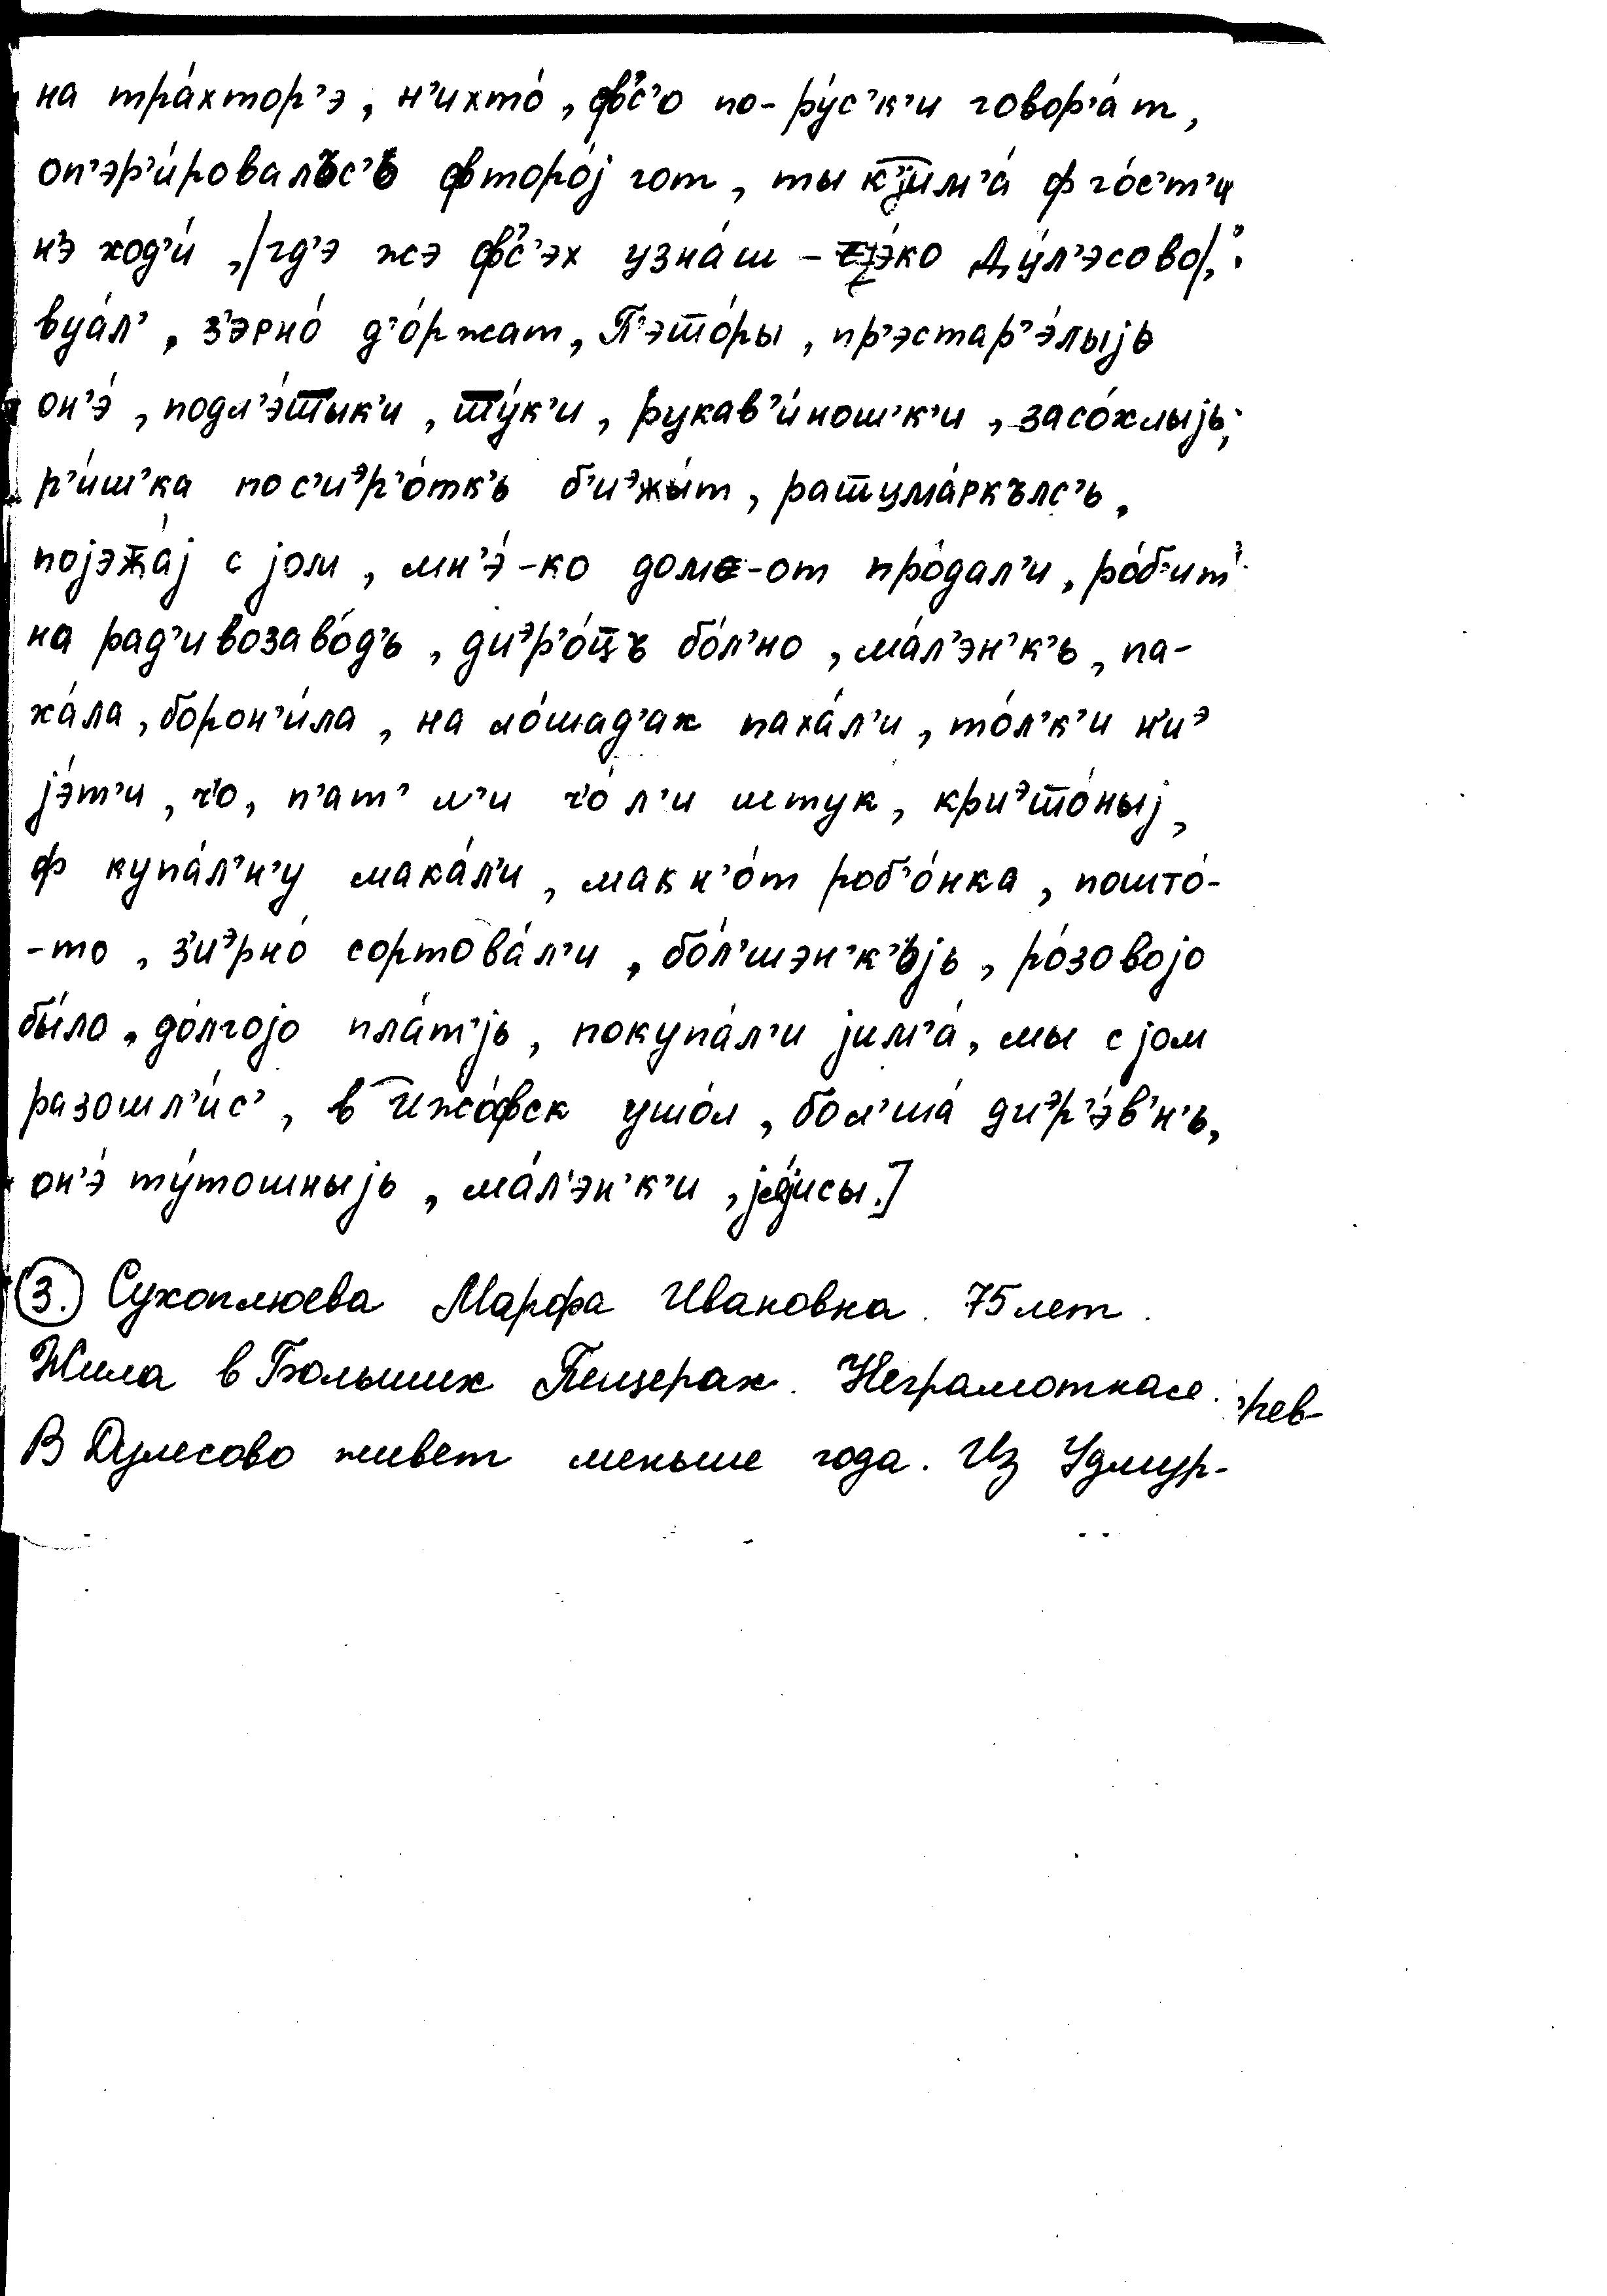 на тра́хтор’э, н’ихто́, фс’о по-ру́с’к’и говор’а́т,
оп’эр’и́ровалъс’ь фторо́j гот, ты к’jим’а́ ф го́с’т’и
нэ ход’и́, /гд’э жэ фс’эх узна́ш – э́ко Ду́л’эсово/,
вуа́л’, з’эрно́ д’о́ржат, П’эшо́ры, пр’эстар’э́лыjь
он’э́, подл’э́шык’и, шу́к’и, рукав’и́нош’к’и, засо́хлыjь,
р’и́ш’ка пос’иэр’о́тк’ь б’иэжы́т, ратшма́ркълс’ь,
поjэжа́j с jом, мн’э́-ко дом-от про́дал’и, ро́б’ит
на рад’ивозаво́дъ, диэр’о́въ бо́л’но, ма́л’эн’к’ь, па-
ха́ла, борон’и́ла, на ло́шад’ах паха́л’и, то́л’к’и н’иэ
jэ́т’и, ч’о, п’ат’ л’и ч’о л’и штук, криэшо́ныj,
ф купа́л’н’у мака́л’и, макн’о́т роб’о́нка, пошто́-
-то, з’иэрно́ сортова́л’и, бо́л’шэн’к’ьjь, ро́зовоjо
бы́ло, до́лгоjо пла́т’jь, покупа́л’и jим’а́, мы с jом
разошл’и́с’, в Ижо́фск ушо́л, бол’ша́ диэр’э́в’н’ь,
он’э́ ту́тошныjь, ма́л’эн’к’и, jэ́jисы.]
3. Сухоплюева Марфа Ивановна. 75 лет.
Жила в Больших Пещерах. Неграмотная.
рев-
В Дулесово живет меньше года. Из Удмур-